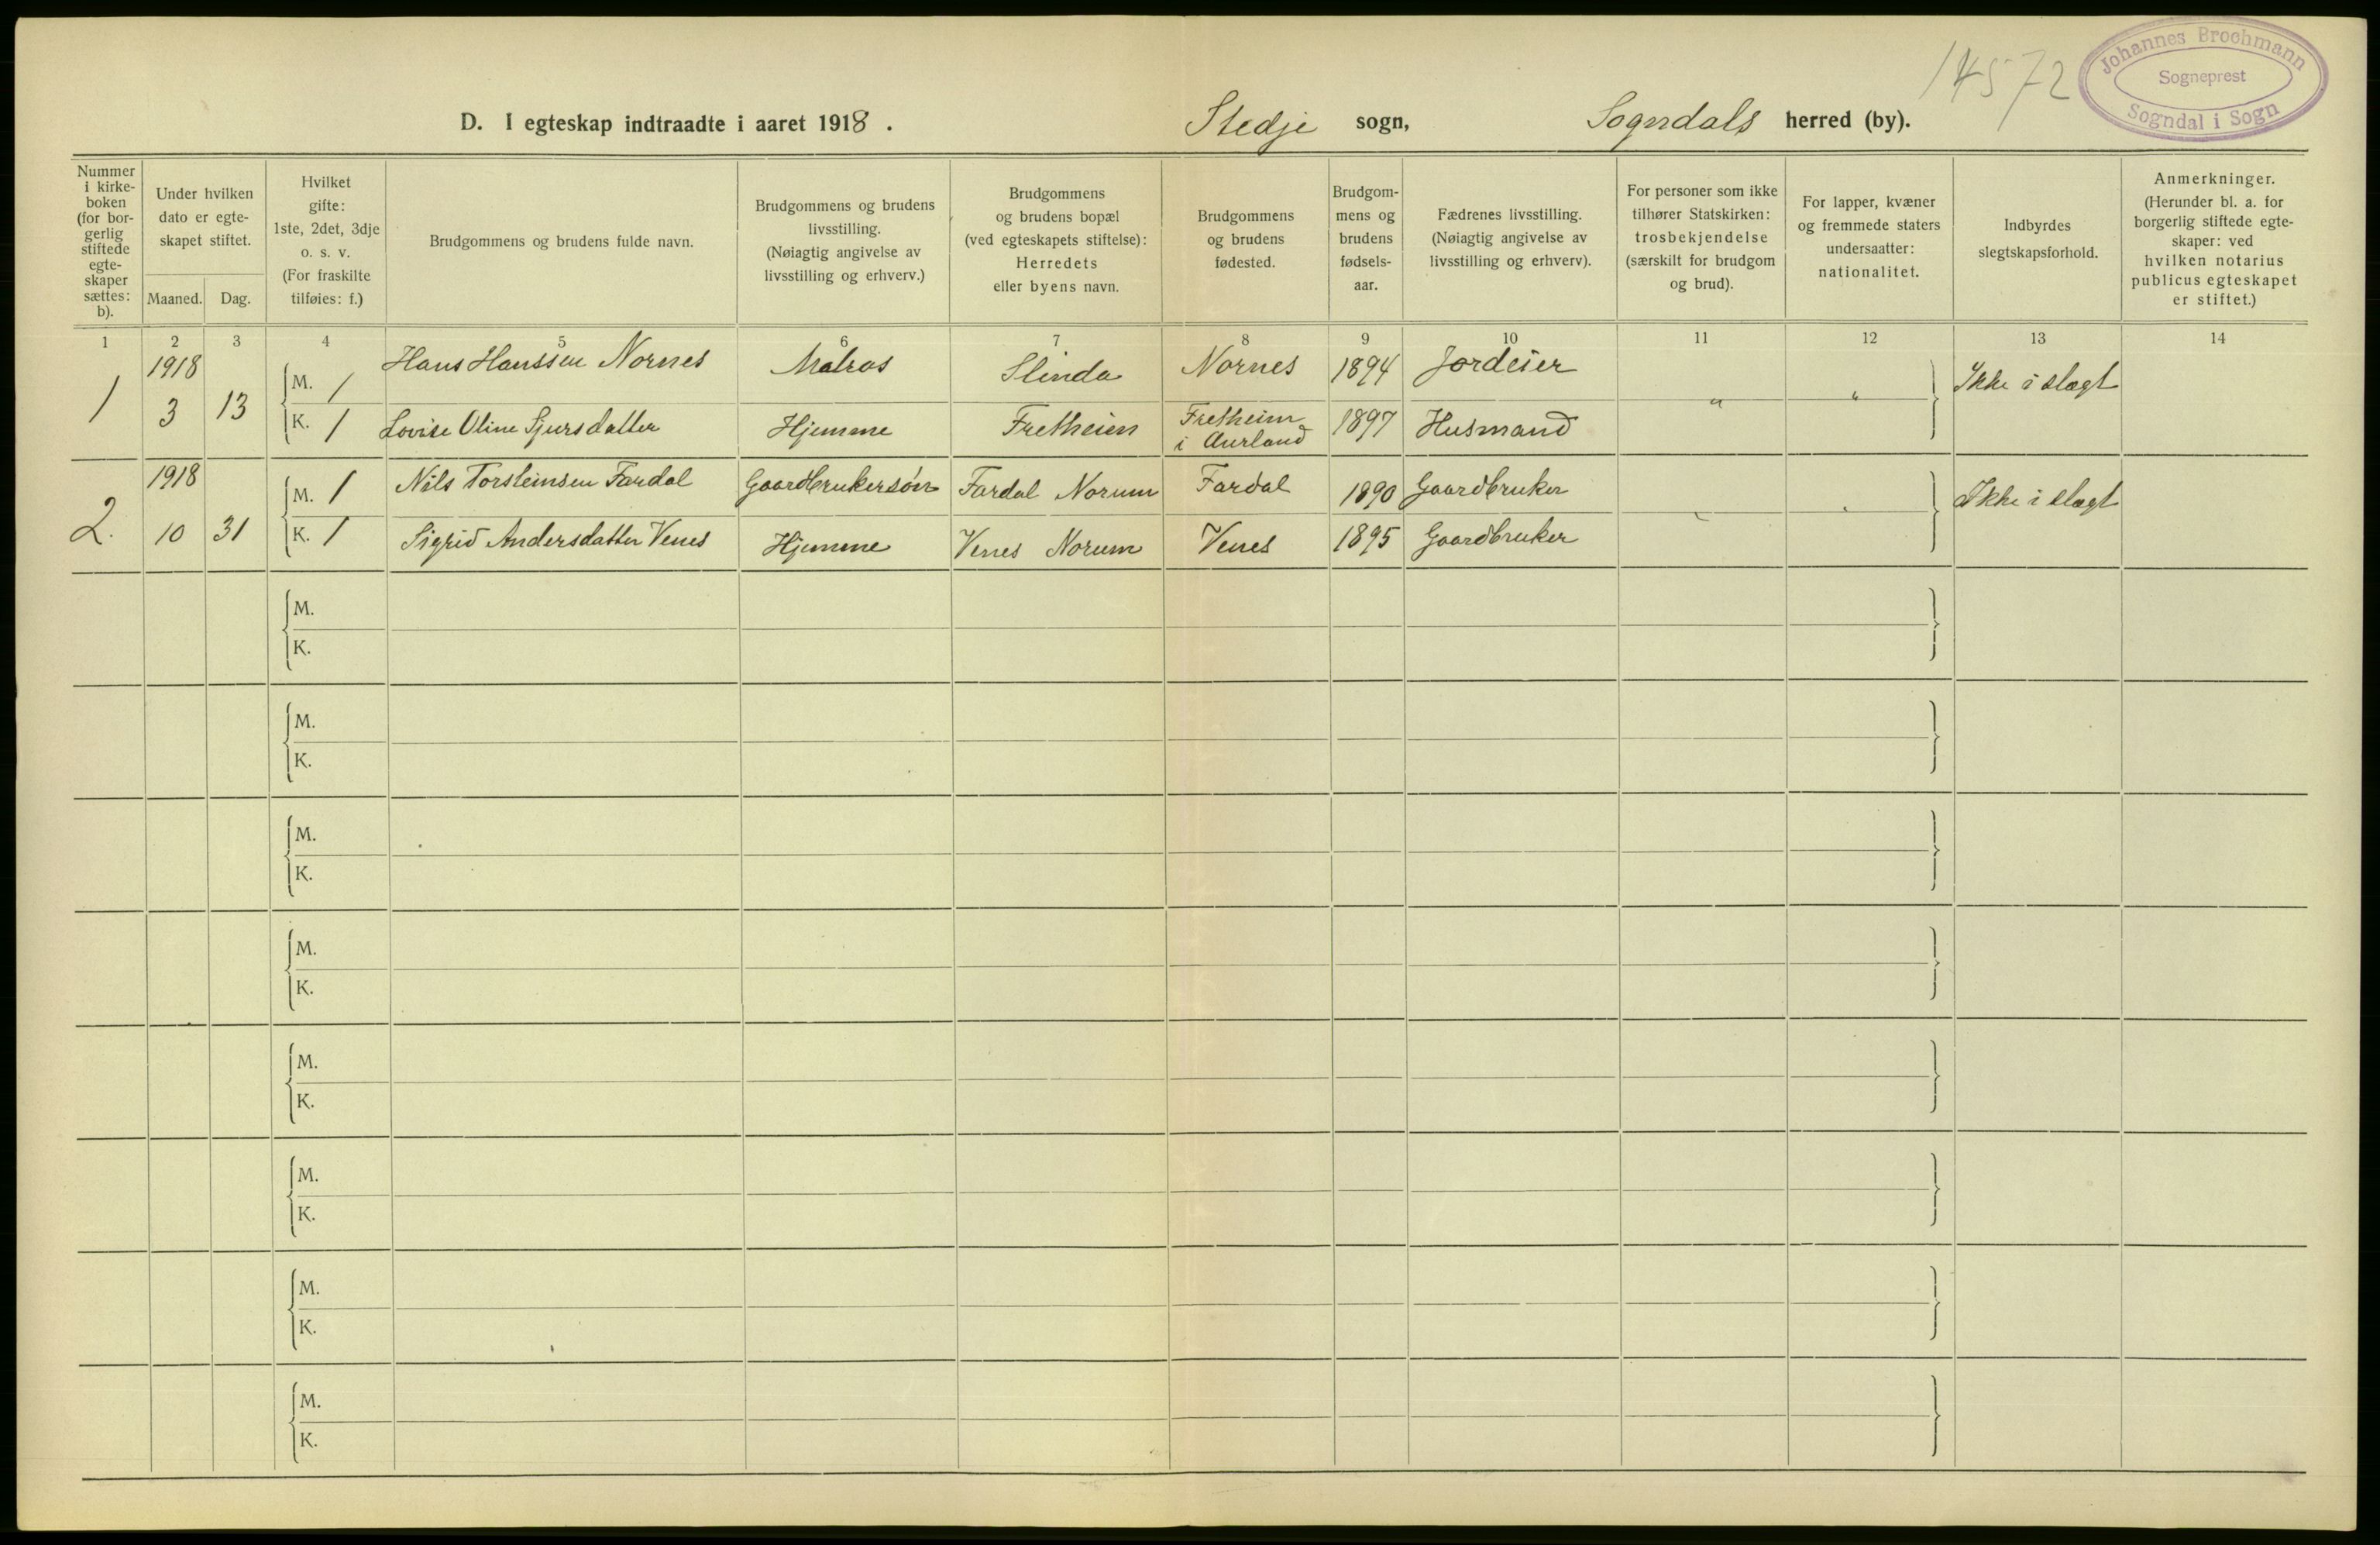 14572
Johannes Brochmann
Sogneprest
Sogndal i Sogn
D. I egteskap indtraadte i aaret 1918. Stedje sogn, Sogndals herred (by).
Nummer i kirke- boken (for bor- gerlig stiftede egte- skaper sættes: b).
Under hvilken dato er egte- skapet stiftet.
Maaned. Dag.
Hvilket gifte: 1ste, 2det, 3dje o. s. v. (For fraskilte tilføies: f.)
Brudgommens og brudens fulde navn.
Brudgommens og brudens livsstilling. (Nøiagtig angivelse av livsstilling og erhverv.)
Brudgommens og brudens bopæl (ved egteskapets stiftelse): Herredets eller byens navn.
Brudgommens og brudens fødested.
Brudgom- mens og brudens fødsels- aar.
Fædrenes livsstilling. (Nøiagtig angivelse av livsstilling og erhverv).
For personer som ikke tilhører Statskirken: trosbekjendelse (særskilt for brudgom og brud).
For lapper, kvæner og fremmede staters undersaatter: nationalitet.
Indbyrdes slegtskapsforhold.
Anmerkninger. (Herunder bl. a. for borgerlig stiftede egte- skaper: ved hvilken notarius publicus egteskapet er stiftet.)
1 2 3 4 5 6 7 8 9 10 11 12 13 14
1 1918 3 13 M. 1 Hans Hanssen Nornes Matros Slinda Nornes 1894 Jordeier " " Ikke i slægt
K. 1 Lovise Oline Sjursdatter Hjemme Fretheim Fretheim i Aurland 1897 Husmand
2. 1918 10 31 M. 1 Nils Torsteinsen Fardal Gaardbrukersøn Fardal Norum Fardal 1890 Gaardbruker Ikke i slægt
K. 1 Sigrid Andersdatter Venes Hjemme Venes Norum Venes 1895 Gaardbruker
M.
K.
M.
K.
M.
K.
M.
K.
M.
K.
M.
K.
M.
K.
M.
K.